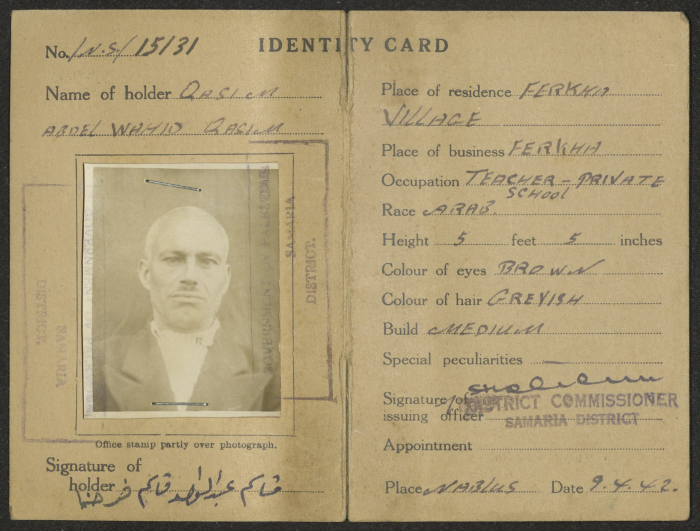 No. /N.S/ 15131
IDENTITY CARD
Name of holder QASIM
ABDEL WAHID QASIM
GOVERNMENT OF PALESTINE
SAMARIA
DISTRICT.
SAMARIA
DISTRICT.
Office stamp partly over photograph.
Signature of
holder قاسم عبد الواحد قاسم فرخه
Place of residence FERKHA
VILLAGE
Place of business FERKHA
Occupation TEACHER - PRIVATE
SCHOOL
Race ARAB.
Height 5 feet 5 inches
Colour of eyes BROWN
Colour of hair GREYISH
Build MEDIUM
Special peculiarities —
Signature of
issuing officer
DISTRICT COMMISSIONER
SAMARIA DISTRICT
Appointment
Place NABLUS Date 9.4.42.